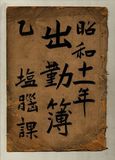 昭和十一年
出勤簿
乙 塩腦課